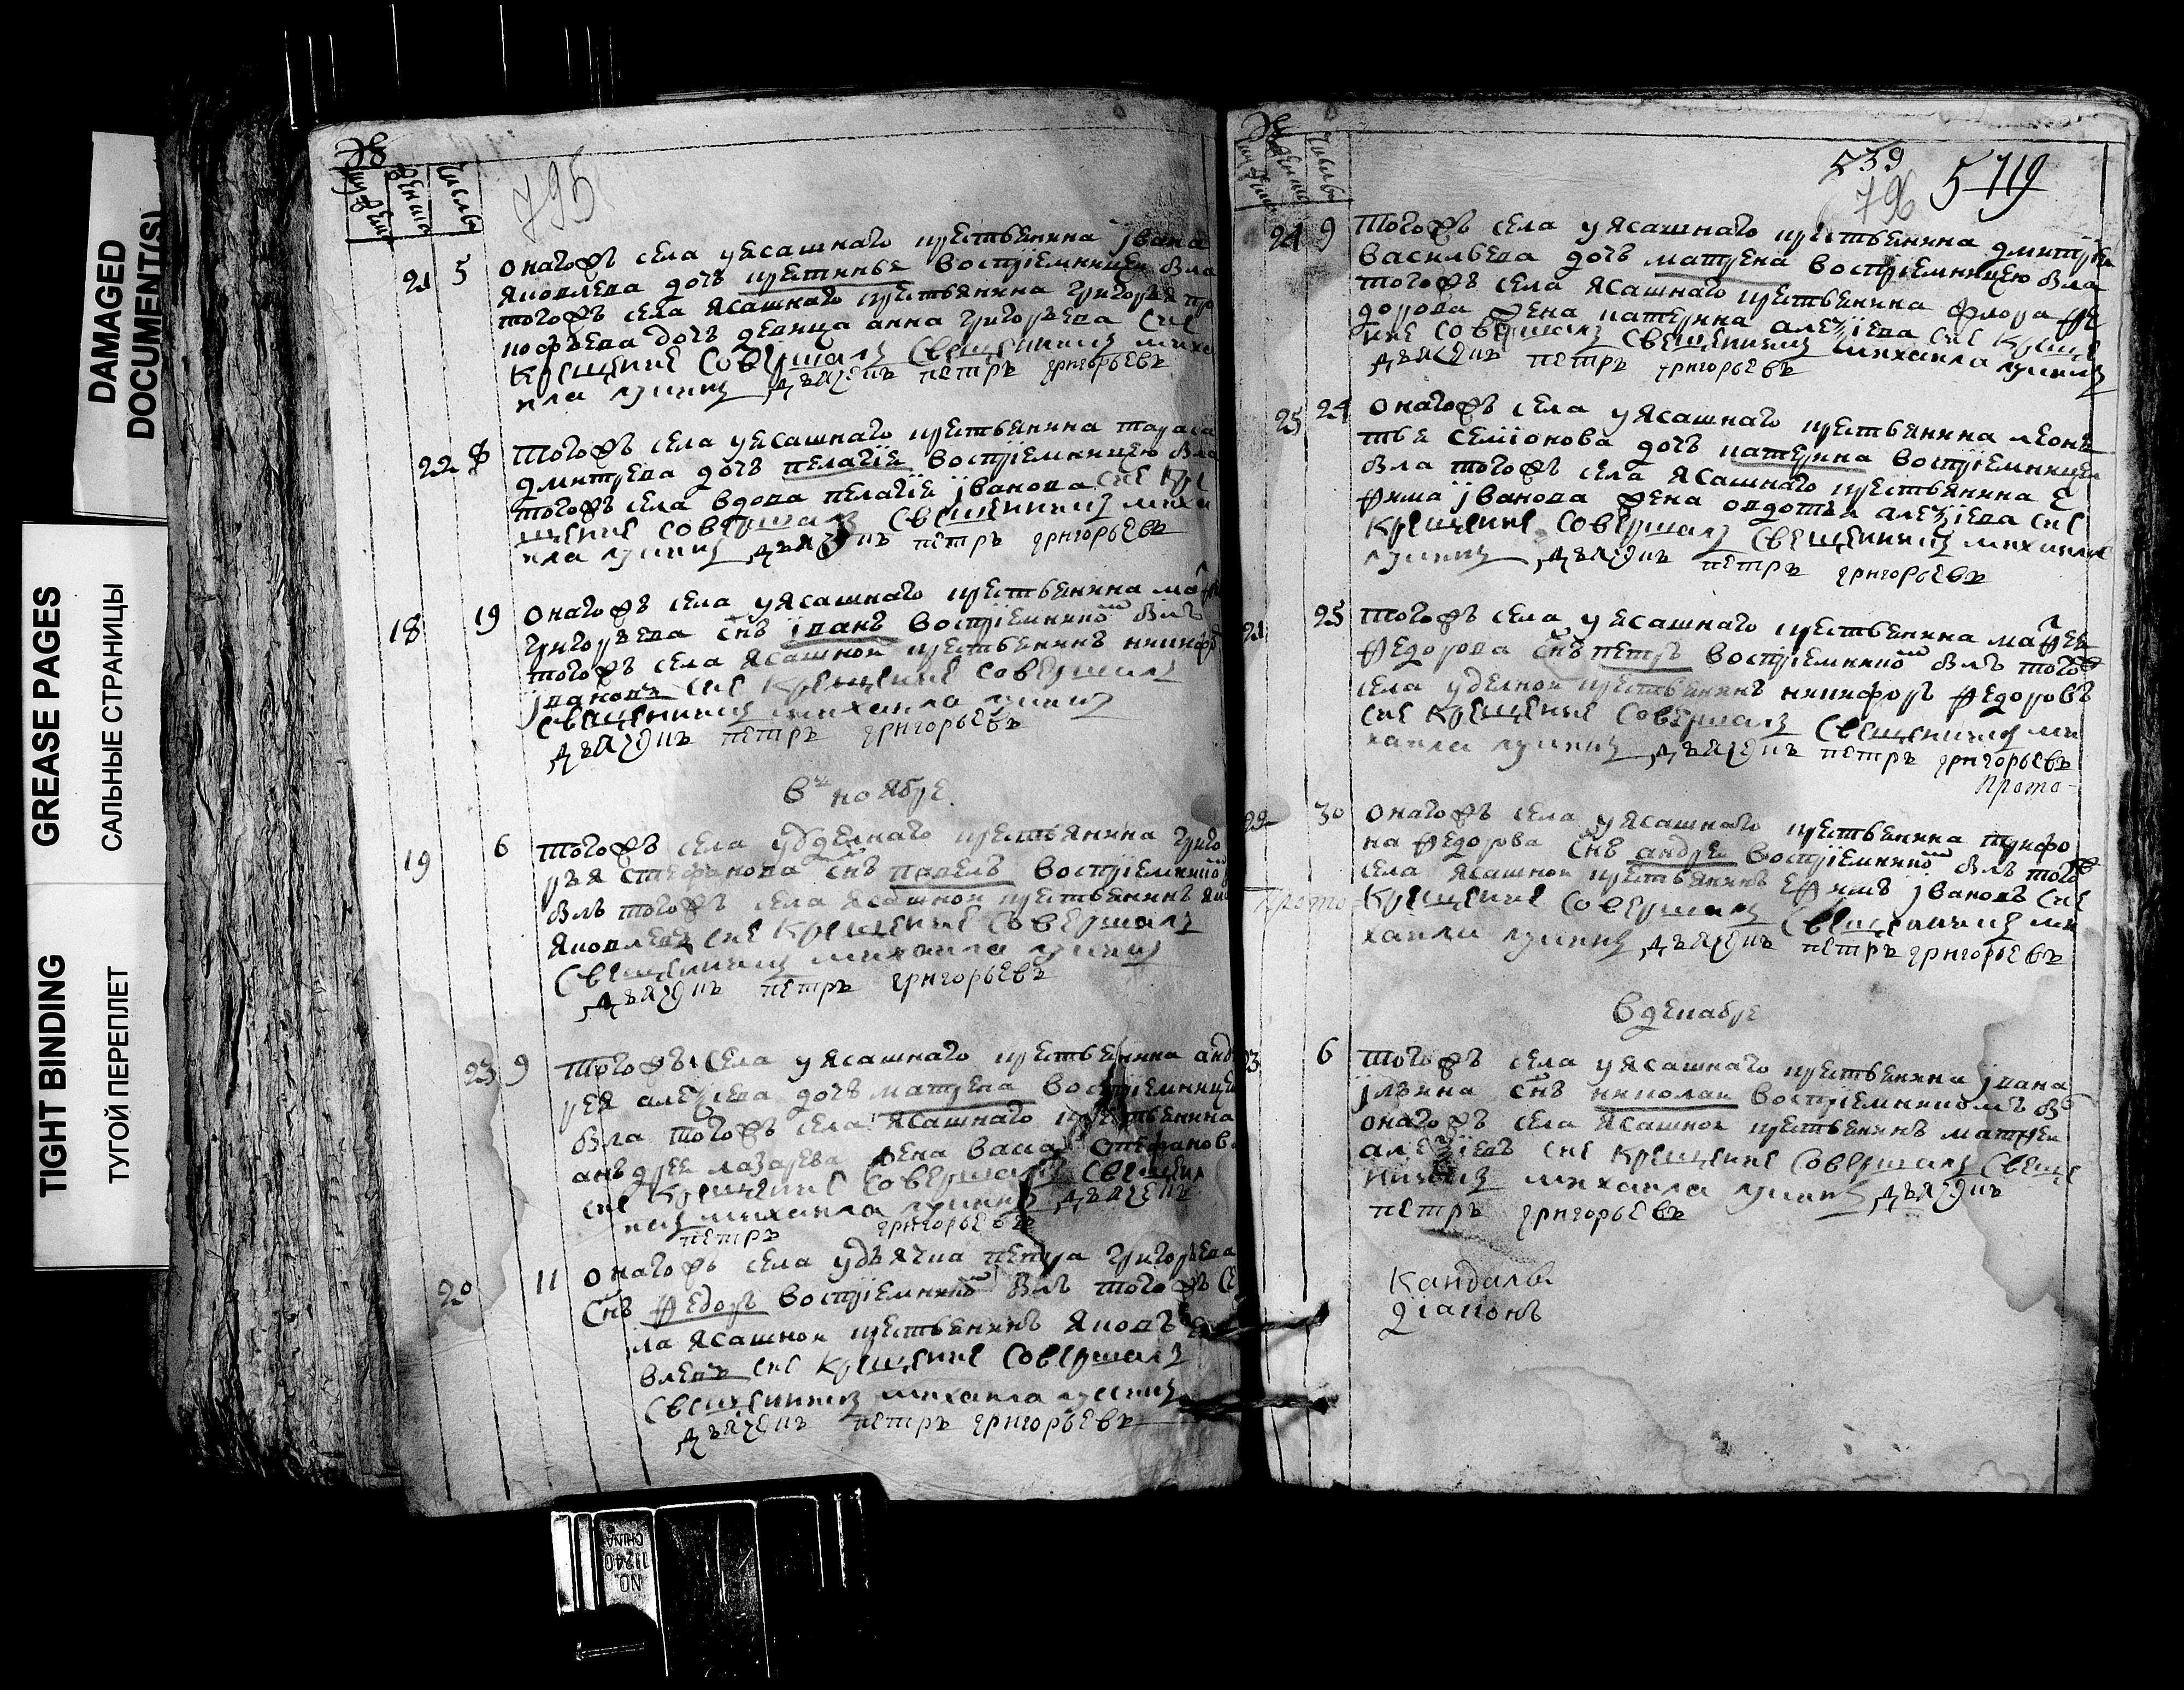 DAMAGED
DOCUMENT(S)
GREASE PAGES
САЛЬНЫЕ СТРАНИЦЫ
TIGHT BINDING
ТУГОЙ ПЕРЕПЛЕТ
795
21 5 онагожъ села уясашнаго крестьянина јвана
яковлева дочь восприемницею была
тогожъ села ясашнаго крестьянина григорья про
кофьева дочь девица анна григорьева сие
крещение совершалъ священникъ миха
ила лукинъ дьячекъ петръ григорьевъ
22 8 тогожъ села уясашнаго крестьянина тараса
дмитрева дочь пелагiе восприемницею была
тогожъ села вдова пелагiе јванова сие кре
щение совершалъ священникъ миха
ила лукинъ дьячокъ петръ григорьевъ
18 19 онагожъ села уясашнаго крестьянина
григорьева снъ јванъ восприемникомъ былъ
тогожъ села ясашной крестьянинъ никифоръ
јвановъ сие крещение совершалъ
священникъ михаила лукинъ
дьячокъ петръ григорьевъ
въ ноябре
19 6 тогожъ села ууделнаго крестьянина григо
рья стефанова снъ павелъ восприемникомъ
былъ тогожъ села ясашной крестьянинъ
яковлевъ сие крещение совершалъ
священникъ михаила лукинъ
дьячокъ петръ григорьевъ
23 9 тогожъ села уясашнаго крестьянина анд
рея алеѯiева дочь матрена восприемницею
была тогожъ села ясашнаго крестьянина
анъдреи лазарева жена стефанова
сие крещение совершалъ священ
никъ михаила лукинъ дьячекъ
петръ григорьевъ
20 11 онагожъ села удьячка петра григорьева
снъ федоръ восприемникомъ былъ тогожъ се
ла ясашной крестьянинъ яковъ
влевъ сие крещение совершалъ
священникъ михаила лукинъ
дьячекъ петръ григорьевъ
239
796 5719
24 9 тогожъ села уясашнаго крестьянина дмитрея
васильева дочь матрена восприемницею была
тогожъ села ясашнаго крестьянина флора фе
дорова жена катерина алеѯiева сие креще
ние совершалъ священникъ михаила лукинъ
дьячекъ петръ григорьевъ
25 24 онагожъ села уясашнаго крестьянина леонъ
тье семiонова дочь катерина восприемницею
была тогожъ села ясашнаго крестьянина е
фима јванова жена овдотья алеѯiева сие
крещение совершалъ священникъ михаила
лукинъ дьячокъ петръ григорьевъ
21 25 тогожъ села уясашнаго крестьянина матфея
федорова снъ петръ восприемникомъ былъ тогожъ
села уделной крестьянинъ никифоръ федоровъ
сие крещение совершалъ священникъ ми
хаила лукинъ дьячокъ петръ григорьевъ
Прото-
22 30 онагожъ села уясашнаго крестьянина трифо
на федорова снъ андреи восприемникомъ былъ тогожъ
села ясашной крестьянинъ ефимъ јвановъ сие
крещение совершалъ священникъ ми
хаила лукинъ дьячокъ петръ григорьевъ
вдекабре
23 6 тогожъ села уясашнаго крестьянина јвана
јльина снъ николаи восприемникомъ бы
онагожъ села ясашной крестьянинъ матфеи
алеѯiевъ сие крещение совершалъ свеще
никъ михаила лукинъ дьячокъ
петръ григорьевъ
Кандалы
дiаконъ
NO.
11240
CHINA